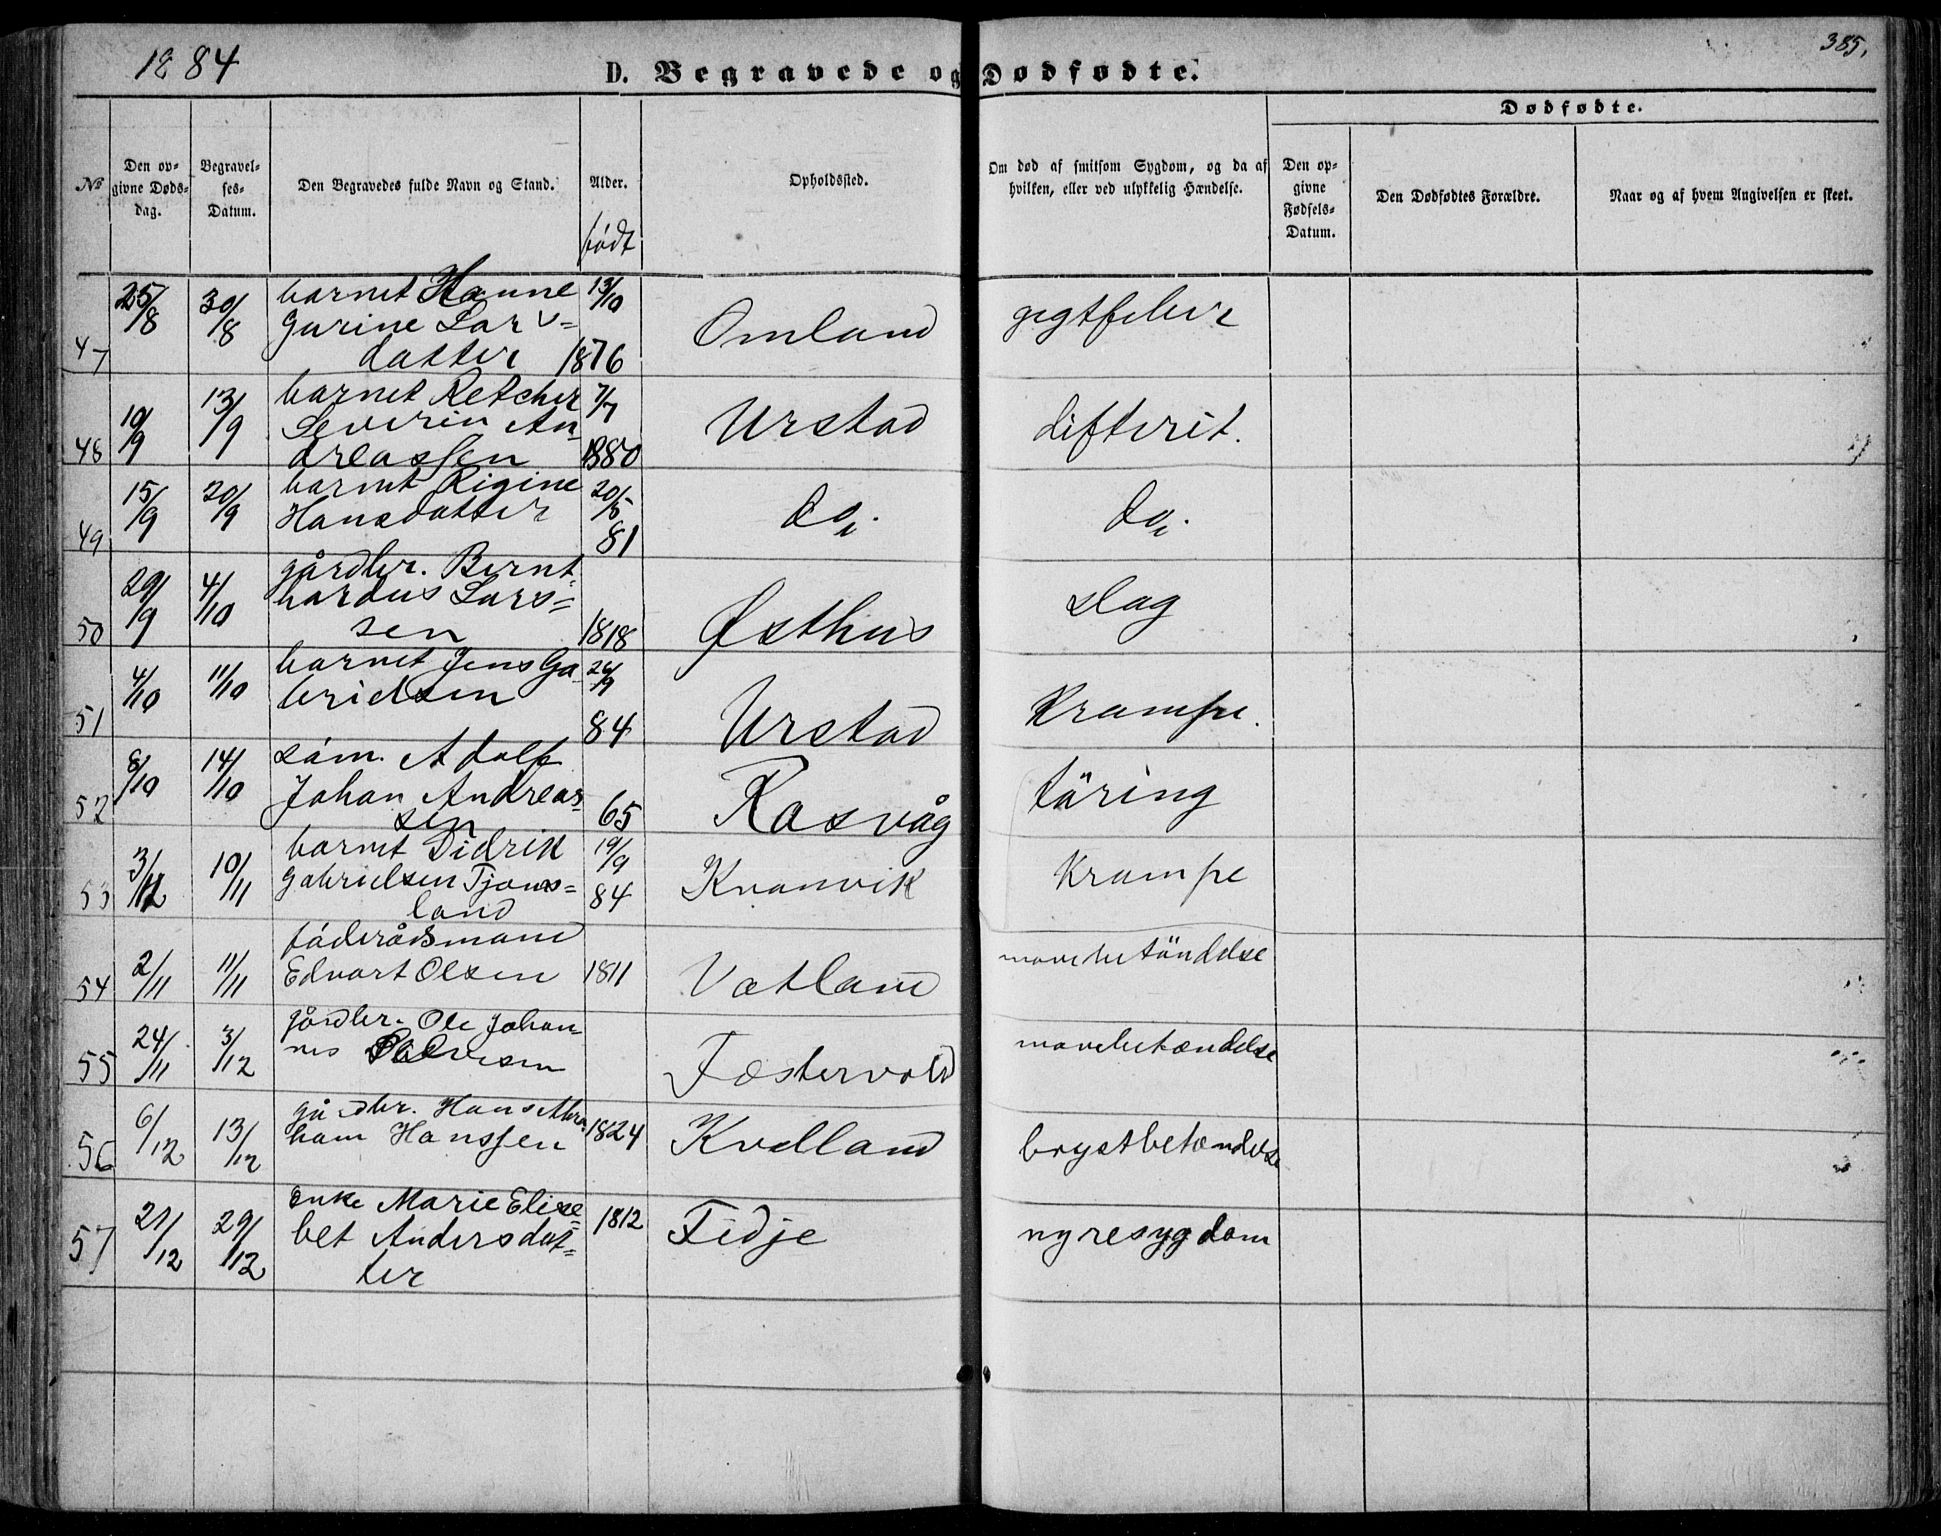 1884
385.
D. Begravede og Dødfødte.
Dødfødte.
No
Den opgivne Dødsdag.
Begravelses-Datum.
Den Begravedes fulde Navn og Stand.
Alder.
født
Opholdssted.
Om død af smitsom Sygdom, og da af hvilken, eller ved ulykkelig Hændelse.
Den opgivne Fødsels-Datum.
Den Dødfødtes Forældre.
Naar og af hvem Angivelsen er skeet.
47 25/8 30/8 barnet Hanne 13/10
Gurine Lars=
datter 1876 Omland gigtfeber
48 10/9 13/9 barnet Retcher 7/7
Severin An=
dreassen 1880 Urstad difterit.
49 15/9 20/9 barnet Rigine 20/5
Hansdatter 81 do. do.
50 29/9 4/10 gårdbr. Bernt
hardus Lars=
sen 1818 Østhus slag
51 4/10 11/10 barnet Jens Ga 24/9
brielsen 84 Urstad Krampe.
52 8/10 14/10 söm. Adolf
Johan Andreas=
sen 65 Rasvåg täring
53 3/11 10/11 barnet Didrik 19/9
Gabrielsen Tjöms=
land 84 Kvanvik Krampe
54 2/11 11/11 föderådsmand
Edvart Olsen 1811 Vatland mavebetöndelse
55 24/11 3/12 gårdbr. Ole Johan=
nes Salvesen Fastervold mavebetændelse
56 6/12 13/12 gårdbr. Hans Abra=
ham Hanssen 1824 Kvelland brystbetændelse
57 21/12 29/12 enke Marie Elise
bet Andersdat=
ter 1812 Fidje nyresygdom